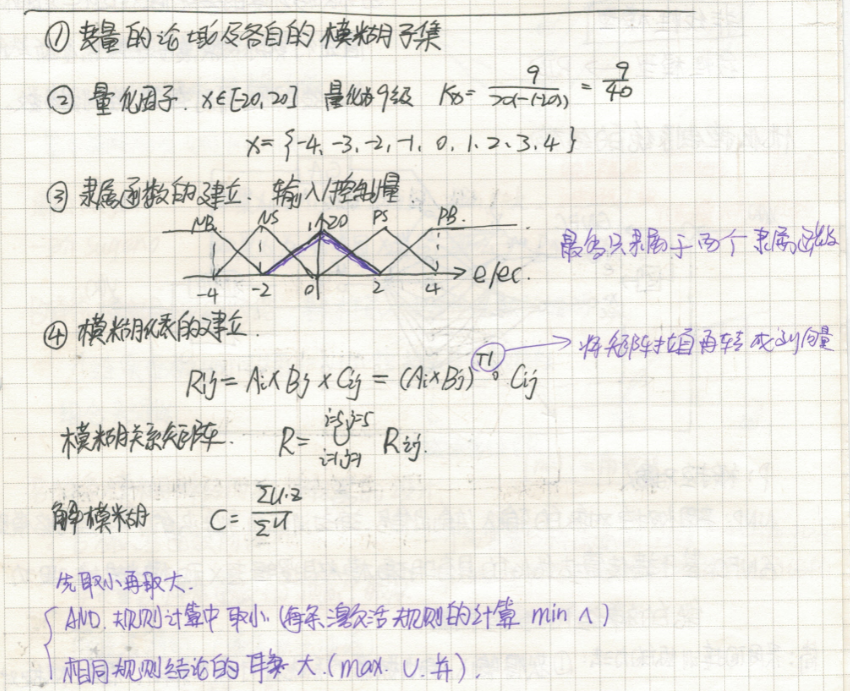 ① 变量的论域及各自的模糊子集
② 量化因子. x∈[-20,20] 量化为9级 K₀= 9/(20-(-20)) = 9/40
x={-4、-3、-2、-1、0、1、2、3、4}
③ 隶属函数的建立. 输入/控制量.
NB NS ZO PS PB.
-4 -2 0 2 4 e/ec.
最多只隶属于两个隶属函数
④ 模糊规则表的建立.
将矩阵拉直再转成列向量
Rij = Ai×Bj×Cij = (Ai×Bj)^T1 ∘ Cij
模糊关系矩阵. R= ∪ i=5,j=5 i=1,j=1 Rij.
解模糊 C= ΣU·Z/ΣU
先取小再取大.
AND. 规则计算中取小. (每条激活规则的计算 min ∧)
相同规则结论的取大. (max. ∪. 并).